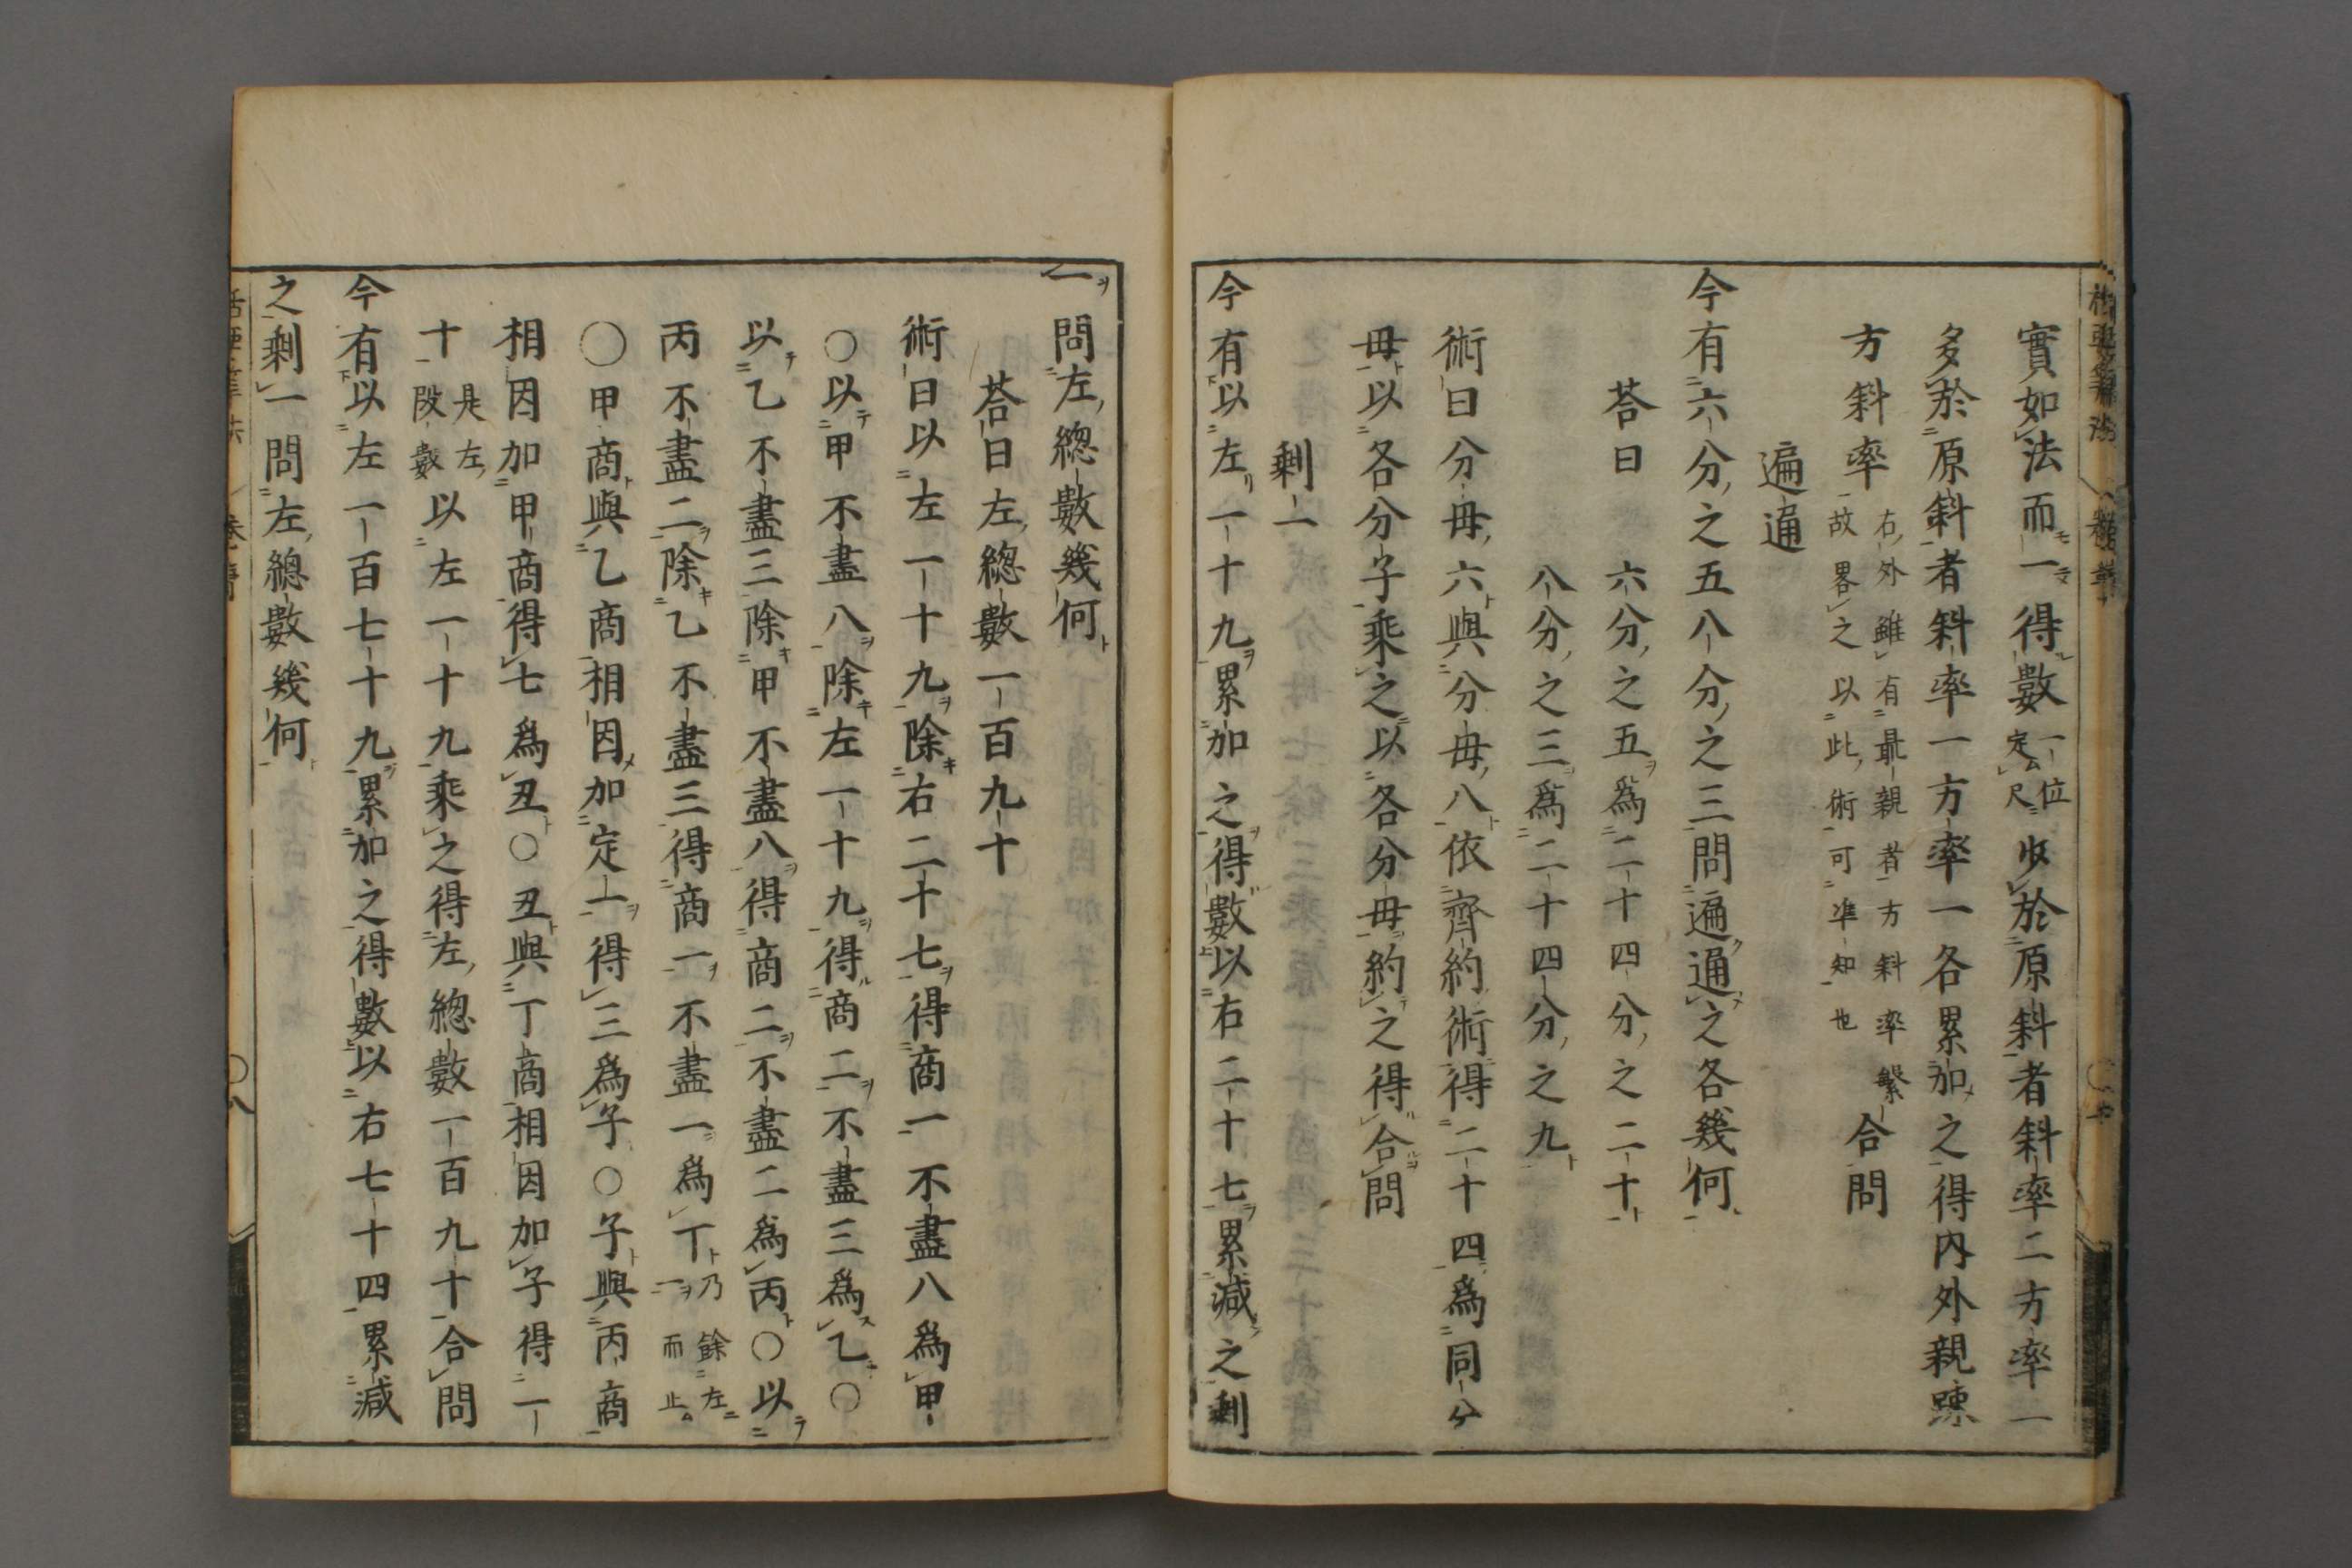 實如法而一得數一位定尺少於原斜者斜率二方率一
多於原斜者斜率一方率一各累加之得内外親疎
方斜率右外雖有最親者方斜率繁故畧之以此術可準知也合問
遍通
今有六分之五八分之三問遍通之各幾何
荅曰　六分之五爲二十四分之二十
八分之三爲二十四分之九
術曰分母六與分母八依齊約術得二十四爲同分
母以各分子乘之以各分母約之得合問
剰一
今有以左一十九累加之得數以右二十七累減之剰
一問左總數幾何
荅曰左總數一百九十
術曰以左一十九除右二十七得商一不盡八爲甲
○以甲不盡八除左一十九得商二不盡三爲乙○
以乙不盡三除甲不盡八得商二不盡二爲丙○以
丙不盡二除乙不盡三得商一不盡一爲丁乃餘左一而止
○甲商與乙商相因加定一得三爲子○子與丙商
相因加甲商得七爲丑○丑與丁商相因加子得一
十是左段數以左一十九乘之得左總數一百九十合問
今有以左一百七十九累加之得數以右七十四累減
之剰一問左總數幾何